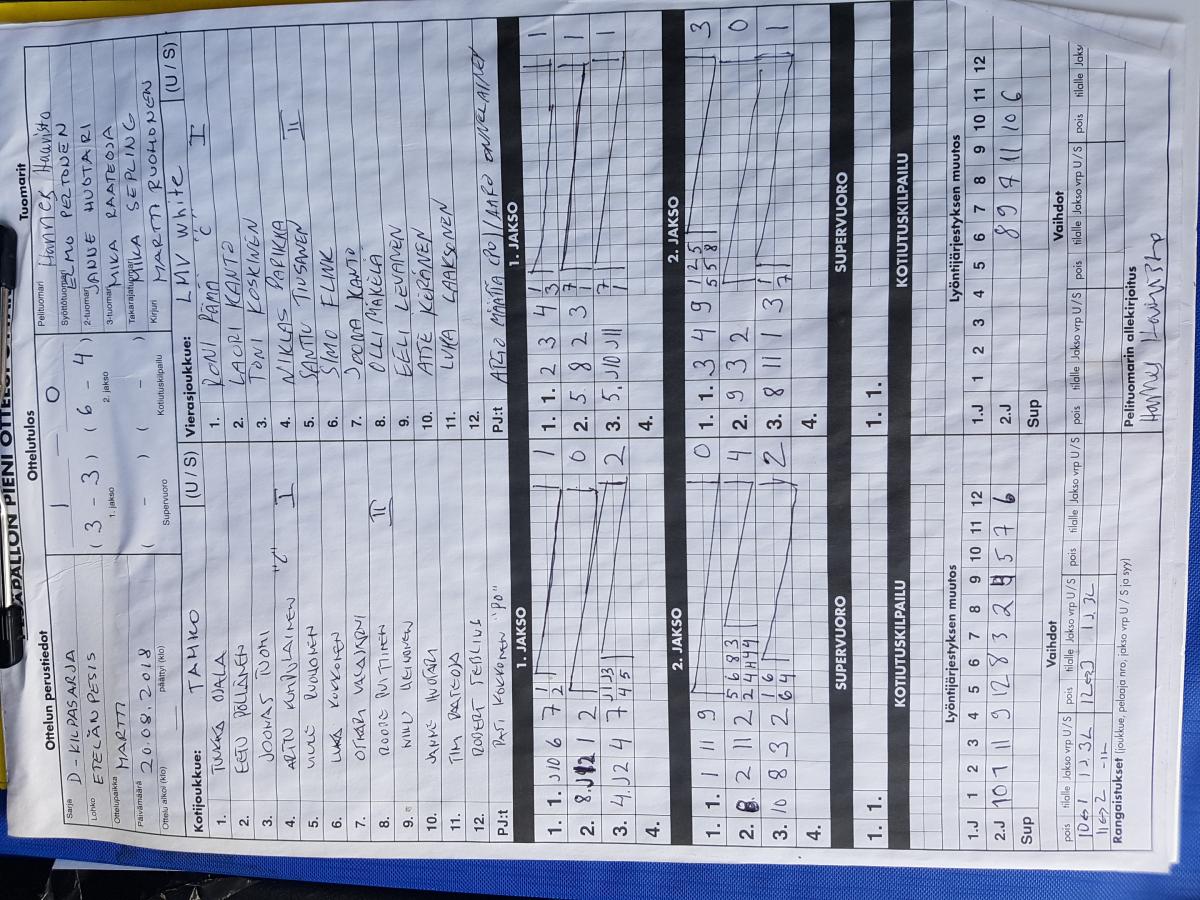 PESÄPALLON PIENI OTTELUPÖYTÄ
Ottelun perustiedot
Sarja D-KILPASARJA
Lohko ETELÄN PESIS
Ottelupaikka MARTTI
Päivämäärä 20.08.2018
Ottelu alkoi (klo) päättyi (klo)
Ottelutulos
1 — 0
( 3 - 3 ) ( 6 - 4 )
1. jakso 2. jakso
( - ) ( - )
Supervuoro Kotiutuskilpailu
Tuomarit
Pelituomari Hannes Hauvisto
Syöttötuomari ELMO PELTONEN
2-tuomari JANNE HUOTARI
3-tuomari MIKA RAATEOJA
Takarajatuomari MIKA SEPLING
Kirjuri MARTTI RUOHONEN
Kotijoukkue: TAHKO (U / S)
1. TUUKKA OJALA
2. EETU PÖLLÄNEN
3. JOONAS TUOMI
4. "C" I
5. VILLE RUOHONEN
6. LUKA KOKKONEN
7.
8. ROOPE II
9. NIILO
10. JANNE
11. TIM RAATEOJA
12. ROBERT
PJ:t PASI KOKKONEN "PO"
Vierasjoukkue: LMV White (U / S)
1. RONI RÄMÄ "C" I
2. LAURI KANTO
3. TONI KOSKINEN
4. NIKLAS PARIKKA II
5. SANTU TIUSANEN
6. SIMO FLINK
7. JOONA KANTO
8. OLLI MÄKELÄ
9. EELI LEVÄNEN
10. ATTE KERÄNEN
11. LUKA LAAKSONEN
12.
PJ:t ARTO MÄÄTTÄ (PO)
1. JAKSO
1. 1. J10 6 7 1
2
1
2. 8 1 2 0
3. 4 J2 4 7 J1 J3
4 5
2
4.
1. JAKSO
1. 1. 2 3 4 1
3
1
2. 5 8 2 3 7
1
1
3. 5 J10 J11 7
1
1
4.
2. JAKSO
1. 1. 1 11 9 0
2. 2 11 12 5 6 8 3
2 4 4 4 4
4
3. 10 8 3 2 1 6
6 4
2
4.
2. JAKSO
1. 1. 3 4 9 1 2 5
5 5 8
3
2. 9 3 2 0
3. 8 11 1 3 1
7
1
4.
SUPERVUORO
1. 1.
SUPERVUORO
1. 1.
KOTIUTUSKILPAILU
KOTIUTUSKILPAILU
Lyöntijärjestyksen muutos
1.J 1 2 3 4 5 6 7 8 9 10 11 12
2.J 10 1 11 9 12 8 3 2 4 5 7 6
Sup
Lyöntijärjestyksen muutos
1.J 1 2 3 4 5 6 7 8 9 10 11 12
2.J 8 9 7 11 10 6
Sup
Vaihdot
pois tilalle Jakso vrp U / S pois tilalle Jakso vrp U / S pois tilalle Jakso vrp U / S
Vaihdot
pois tilalle Jakso vrp U / S pois tilalle Jakso vrp U / S pois tilalle Jakso
10⇔1 1J, 3L 12⇔3 1J, 3L
11⇔2 -11-
Rangaistukset (joukkue, pelaaja nro, jakso vrp U / S ja syy)
Pelituomarin allekirjoitus